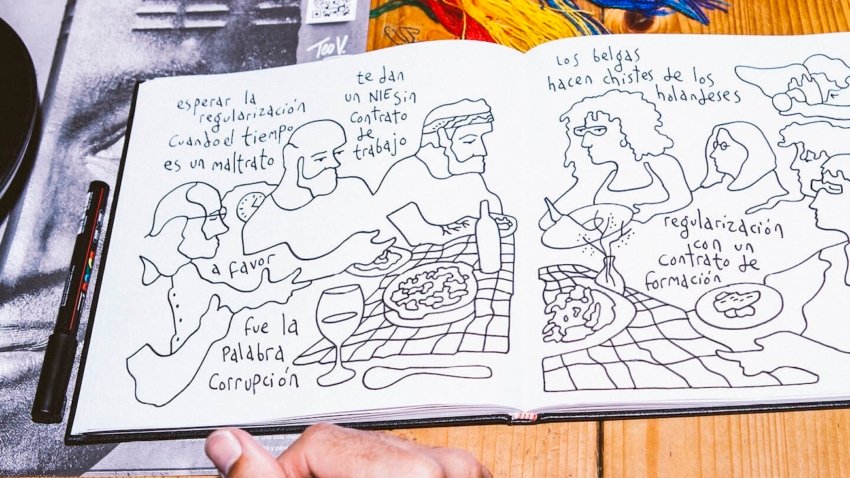 Teo V.
esperar la
regularización
cuando el tiempo
es un maltrato
te dan
un NIE sin
contrato
de
trabajo
a favor
fue la
palabra
corrupción
Los belgas
hacen chistes de los
holandeses
regularización
con un
contrato de
formación